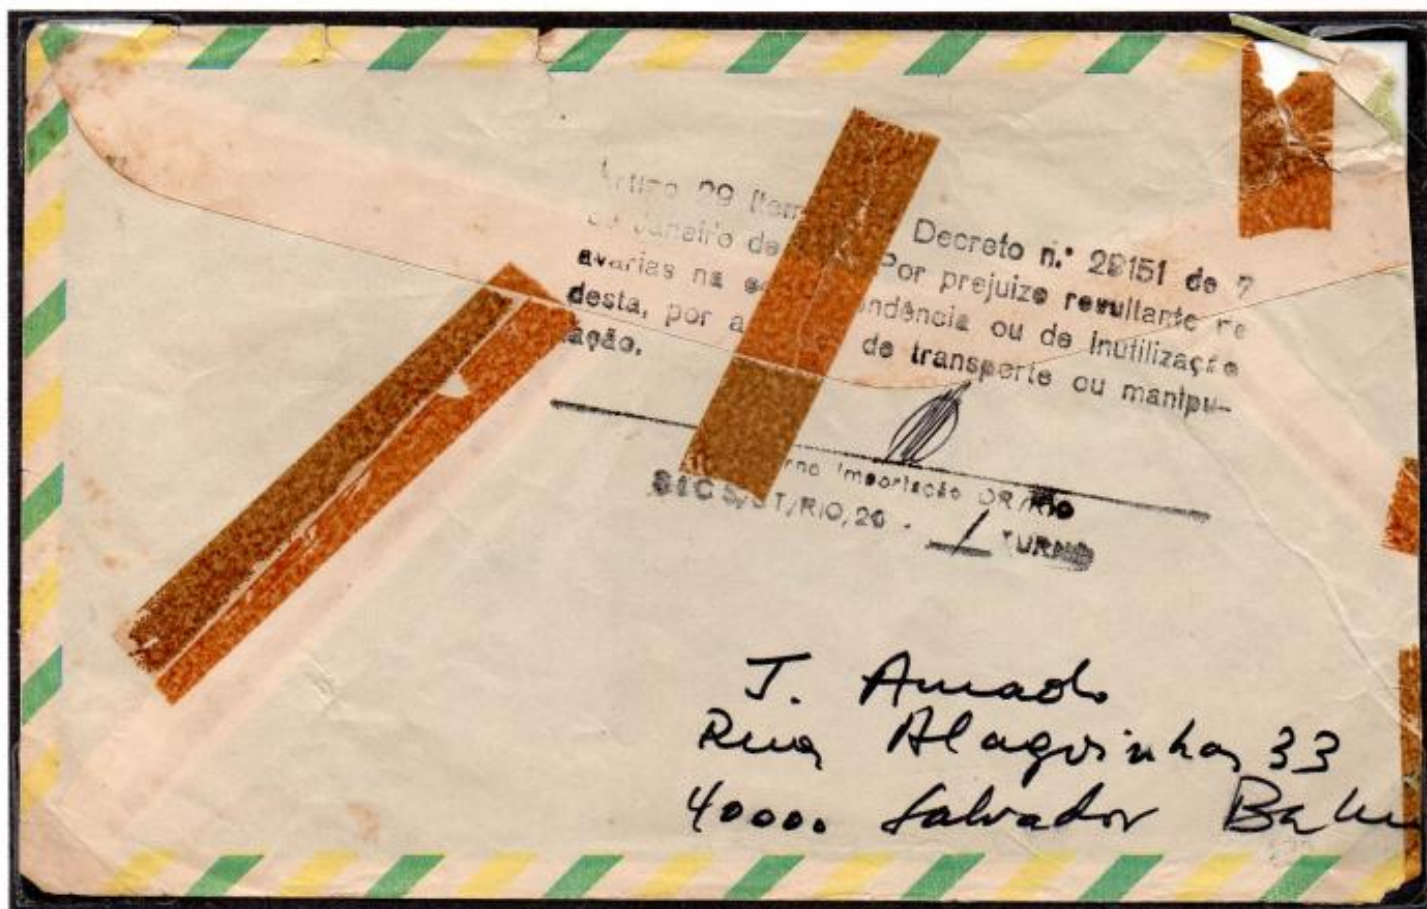 Artigo 29 Item Decreto n.º 29151 de 7
de Janeiro de Por prejuizo resultante de
avarias na ndência ou de inutilização
desta, por a de transporte ou manipu-
ação.
rno Importação DR/RIO
/RIO, 20 - / TURNO
J. Amado
Rua Alagoinhas 33
40000 Salvador Bahia